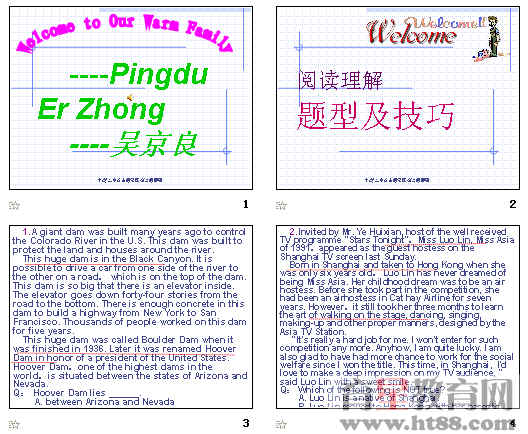 Welcome to Our Warm Family
----Pingdu
Er Zhong
----吴京良
1
Welcome!!
Welcome
阅读理解
题型及技巧
2
1.A giant dam was built many years ago to control
the Colorado River in the U.S. This dam was built to
protect the land and houses around the river.
This huge dam is in the Black Canyon. It is
possible to drive a car from one side of the river to
the other on a road. which is on the top of the dam.
This dam is so big that there is an elevator inside.
The elevator goes down forty-four stories from the
road to the bottom. There is enough concrete in this
dam to build a highway from New York to San
Francisco. Thousands of people worked on this dam
for five years.
This huge dam was called Boulder Dam when it
was finished in 1936. Later it was renamed Hoover
Dam in honor of a president of the United States.
Hoover Dam, one of the highest dams in the
world, is situated between the states of Arizona and
Nevada.
Q: Hoover Dam lies
A. between Arizona and Nevada
3
2.Invited by Mr. Ye Huixian, host of the well received
TV programme "Stars Tonight", Miss Luo Lin, Miss Asia
of 1991, appeared as the guest hostess on the
Shanghai TV screen last Sunday.
Born in Shanghai and taken to Hong Kong when she
was only six years old, Luo Lin has never dreamed of
being Miss Asia. Her childhood dream was to be an air
hostess. Before she took part in the competition, she
had been an airhostess in Cat hay Airline for seven
years. However, it still took her three months to learn
the art of walking on the stage, dancing, singing,
making-up and other proper manners, designed by the
Asia TV Station.
"It's really a hard job for me. I won't enter for such
competition any more. Anyhow, I am quite lucky. I am
also glad to have had more chance to work for the social
welfare since I won the title. This time, in Shanghai, I'd
love to make a deep impression on my TV audience,"
said Luo Lin with a sweet smile.
Q: Which of the following is NOT true?
A. Luo Lin is a native of Shanghai
教育网
www.ht88.com
4